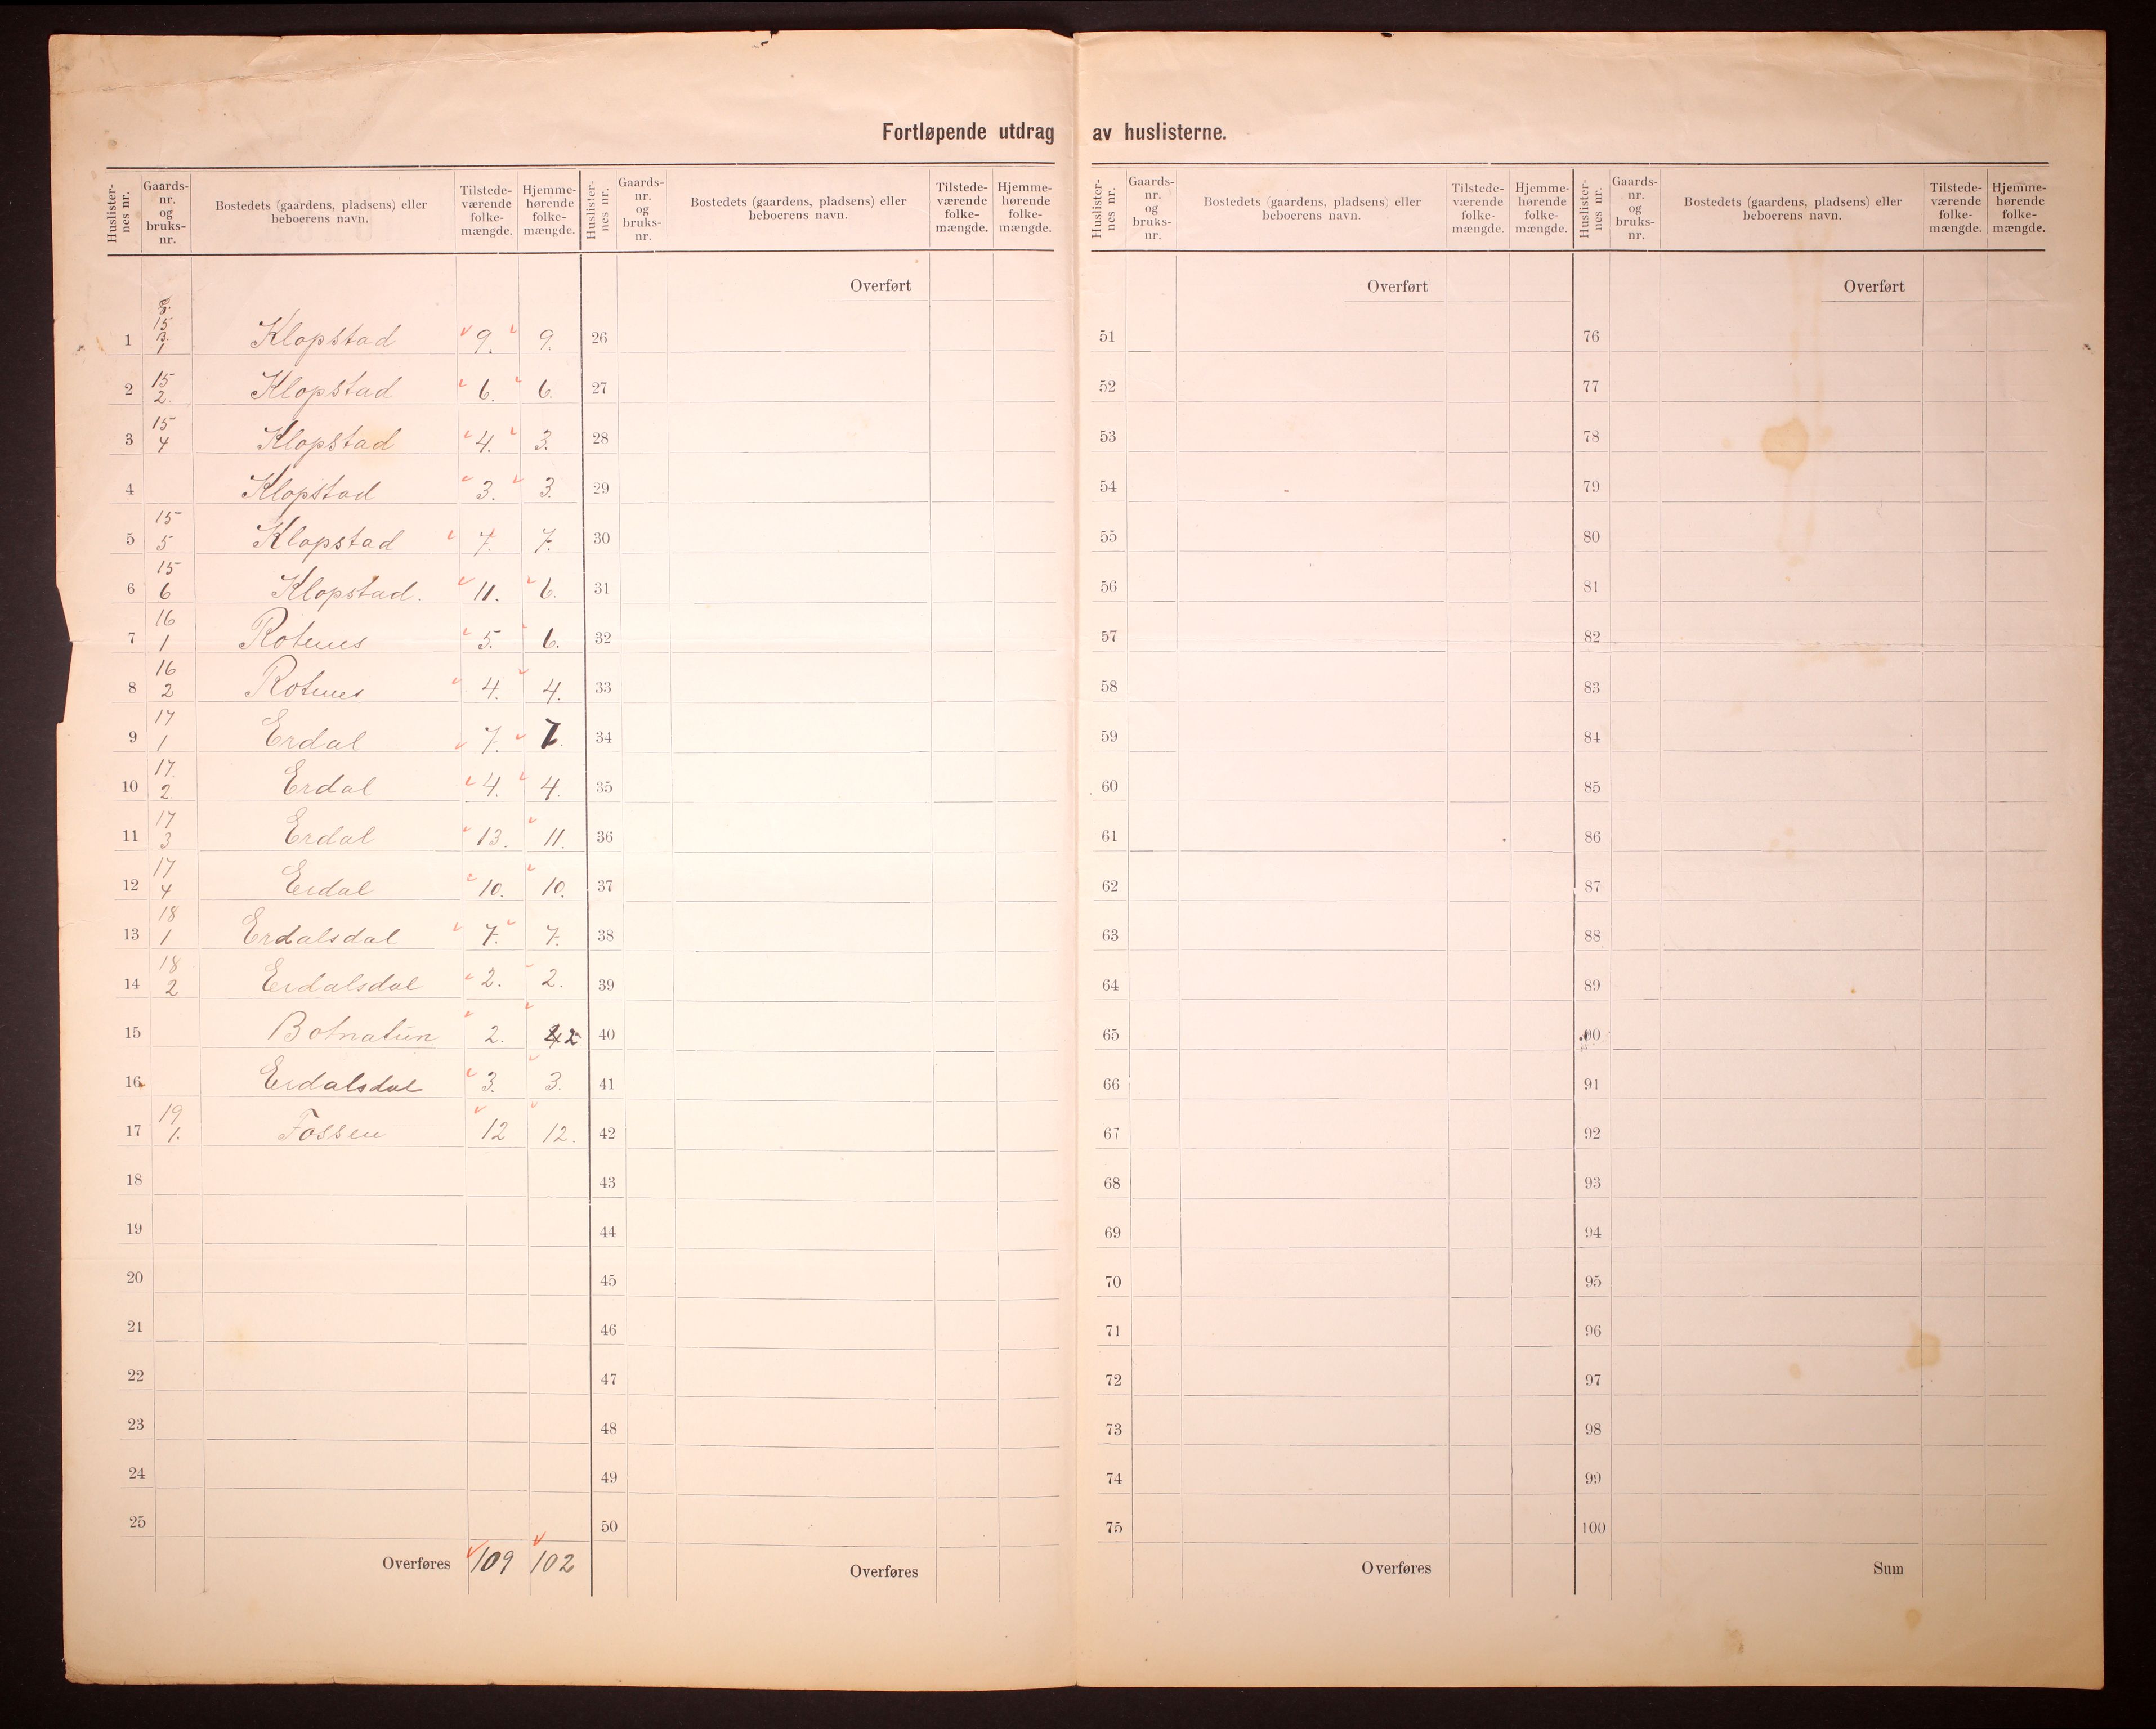 Fortløpende utdrag av huslisterne.
Huslister-nes nr. Gaards-nr. og bruks-nr. Bostedets (gaardens, pladsens) eller beboerens navn. Tilstede-værende folke-mængde. Hjemme-hørende folke-mængde.
G. 15 B. 1
1 Klopstad 9. 9.
2 15 2. Klopstad 6. 6.
3 15 4 Klopstad 4. 3.
4 Klopstad 3. 3.
5 15 5 Klopstad 7. 7.
6 15 6 Klopstad. 11. 6.
7 16 1 Rotenes 5. 6.
8 16 2 Rotnes 4. 4.
9 17 1 Erdal 7. 7.
10 17. 2 Erdal 4. 4.
11 17 3 Erdal 13. 11.
12 17 4 Erdal 10. 10.
13 18 1 Erdalsdal 7. 7.
14 18 2 Erdalsdal 2. 2.
15 Botnatun 2. 2
16 Erdalsdal 3. 3.
17 19 1. Fossen 12 12.
18
19
20
21
22
23
24
25
Overføres 109 102
Huslister-nes nr. Gaards-nr. og bruks-nr. Bostedets (gaardens, pladsens) eller beboerens navn. Tilstede-værende folke-mængde. Hjemme-hørende folke-mængde.
Overført
26
27
28
29
30
31
32
33
34
35
36
37
38
39
40
41
42
43
44
45
46
47
48
49
50
Overføres
Huslister-nes nr. Gaards-nr. og bruks-nr. Bostedets (gaardens, pladsens) eller beboerens navn. Tilstede-værende folke-mængde. Hjemme-hørende folke-mængde.
Overført
51
52
53
54
55
56
57
58
59
60
61
62
63
64
65
66
67
68
69
70
71
72
73
74
75
Overføres
Huslister-nes nr. Gaards-nr. og bruks-nr. Bostedets (gaardens, pladsens) eller beboerens navn. Tilstede-værende folke-mængde. Hjemme-hørende folke-mængde.
Overført
76
77
78
79
80
81
82
83
84
85
86
87
88
89
90
91
92
93
94
95
96
97
98
99
100
Sum